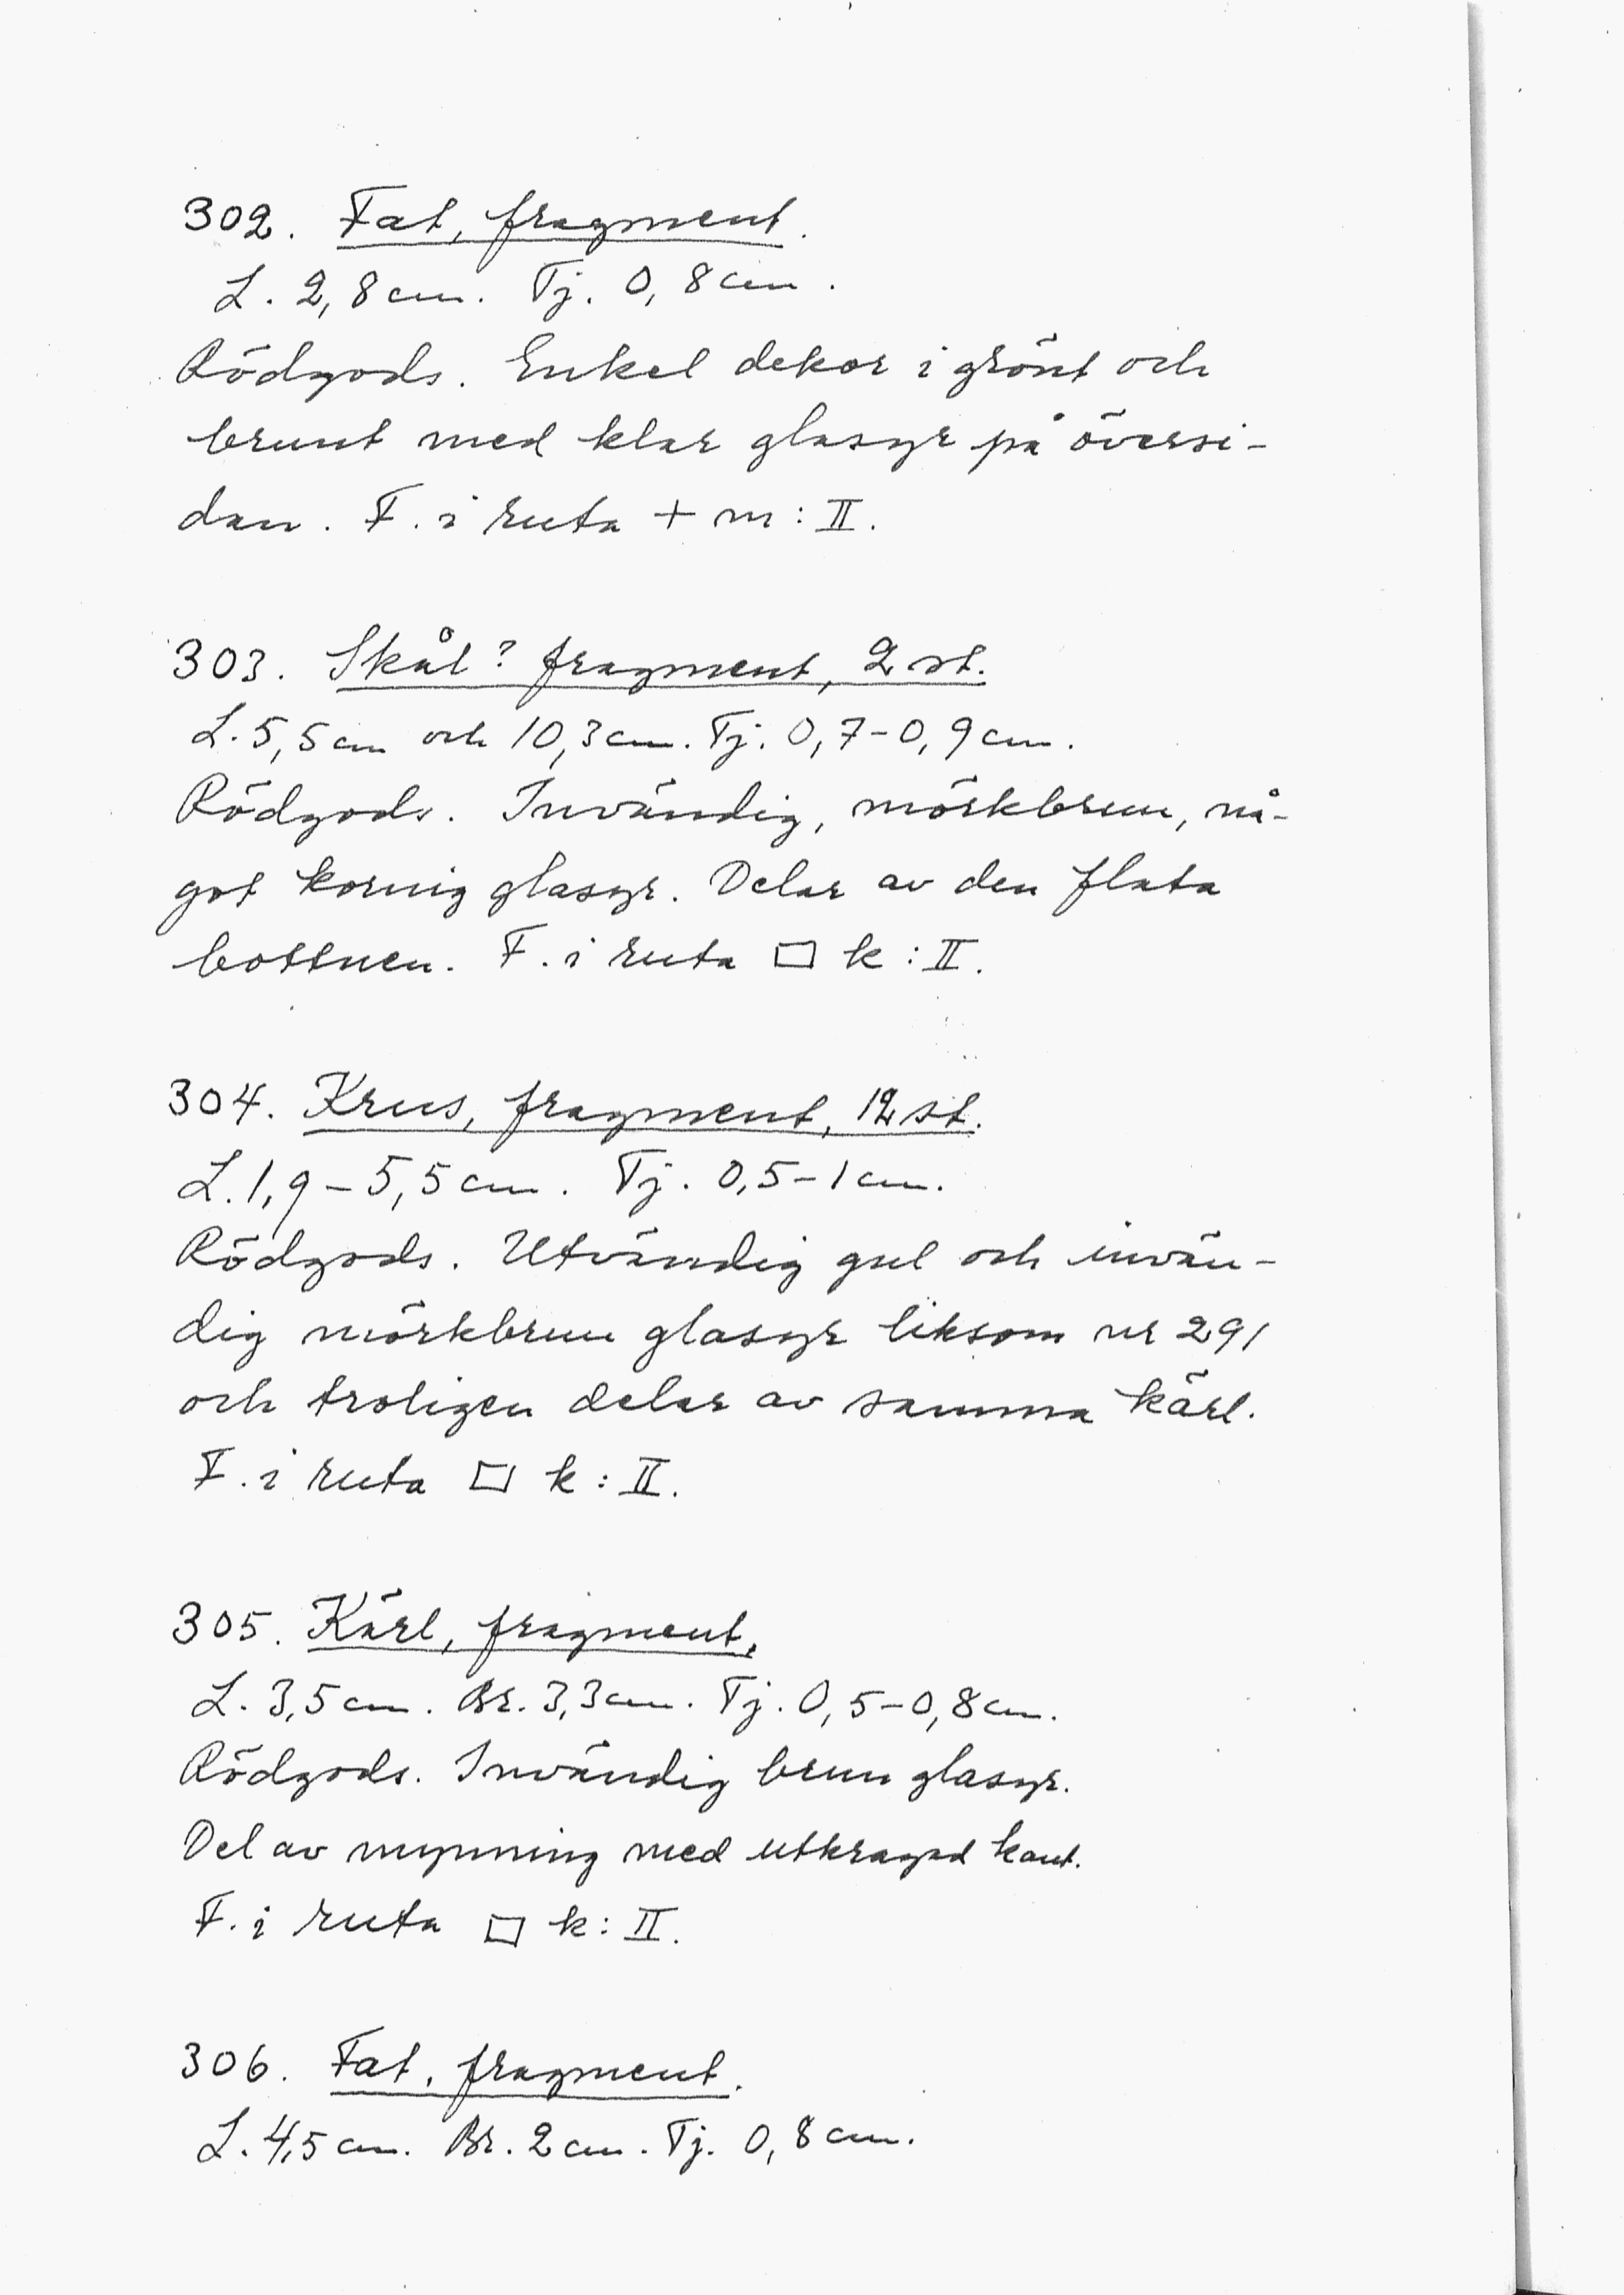 302. Fat, fragment.
L. 2,8 cm. Tj. 0,8 cm.
Rödgods. Enkel dekor i grönt och
brunt med klar glasyr på översi-
dan. F. i ruta + m : II.
303. Skål? fragment, 2 st.
L. 5,5 cm och 10,3 cm. Tj. 0,7-0,9 cm.
Rödgods. Invändig, mörkbrun, nå-
got kornig glasyr. Delar av den flata
bottnen. F. i ruta □ k : II.
304. Krus, fragment, 12 st.
L. 1,9 - 5,5 cm. Tj. 0,5 - 1 cm.
Rödgods. Utvändig gul och invän-
dig mörkbrun glasyr liksom nr 291
och troligen delar av samma kärl.
F. i ruta □ k : II.
305. Kärl, fragment.
L. 3,5 cm. Br. 3,3 cm. Tj. 0,5-0,8 cm.
Rödgods. Invändig brun glasyr.
Del av mynning med utkragad kant.
F. i ruta □ k : II.
306. Fat, fragment.
L. 4,5 cm. Br. 2 cm. Tj. 0,8 cm.